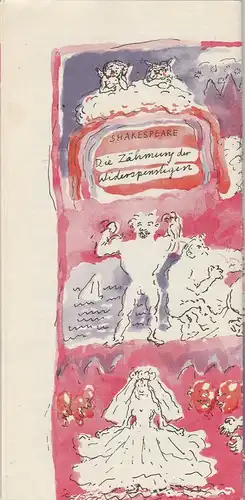 SHAKESPEARE
Die Zähmung der
Widerspenstigen